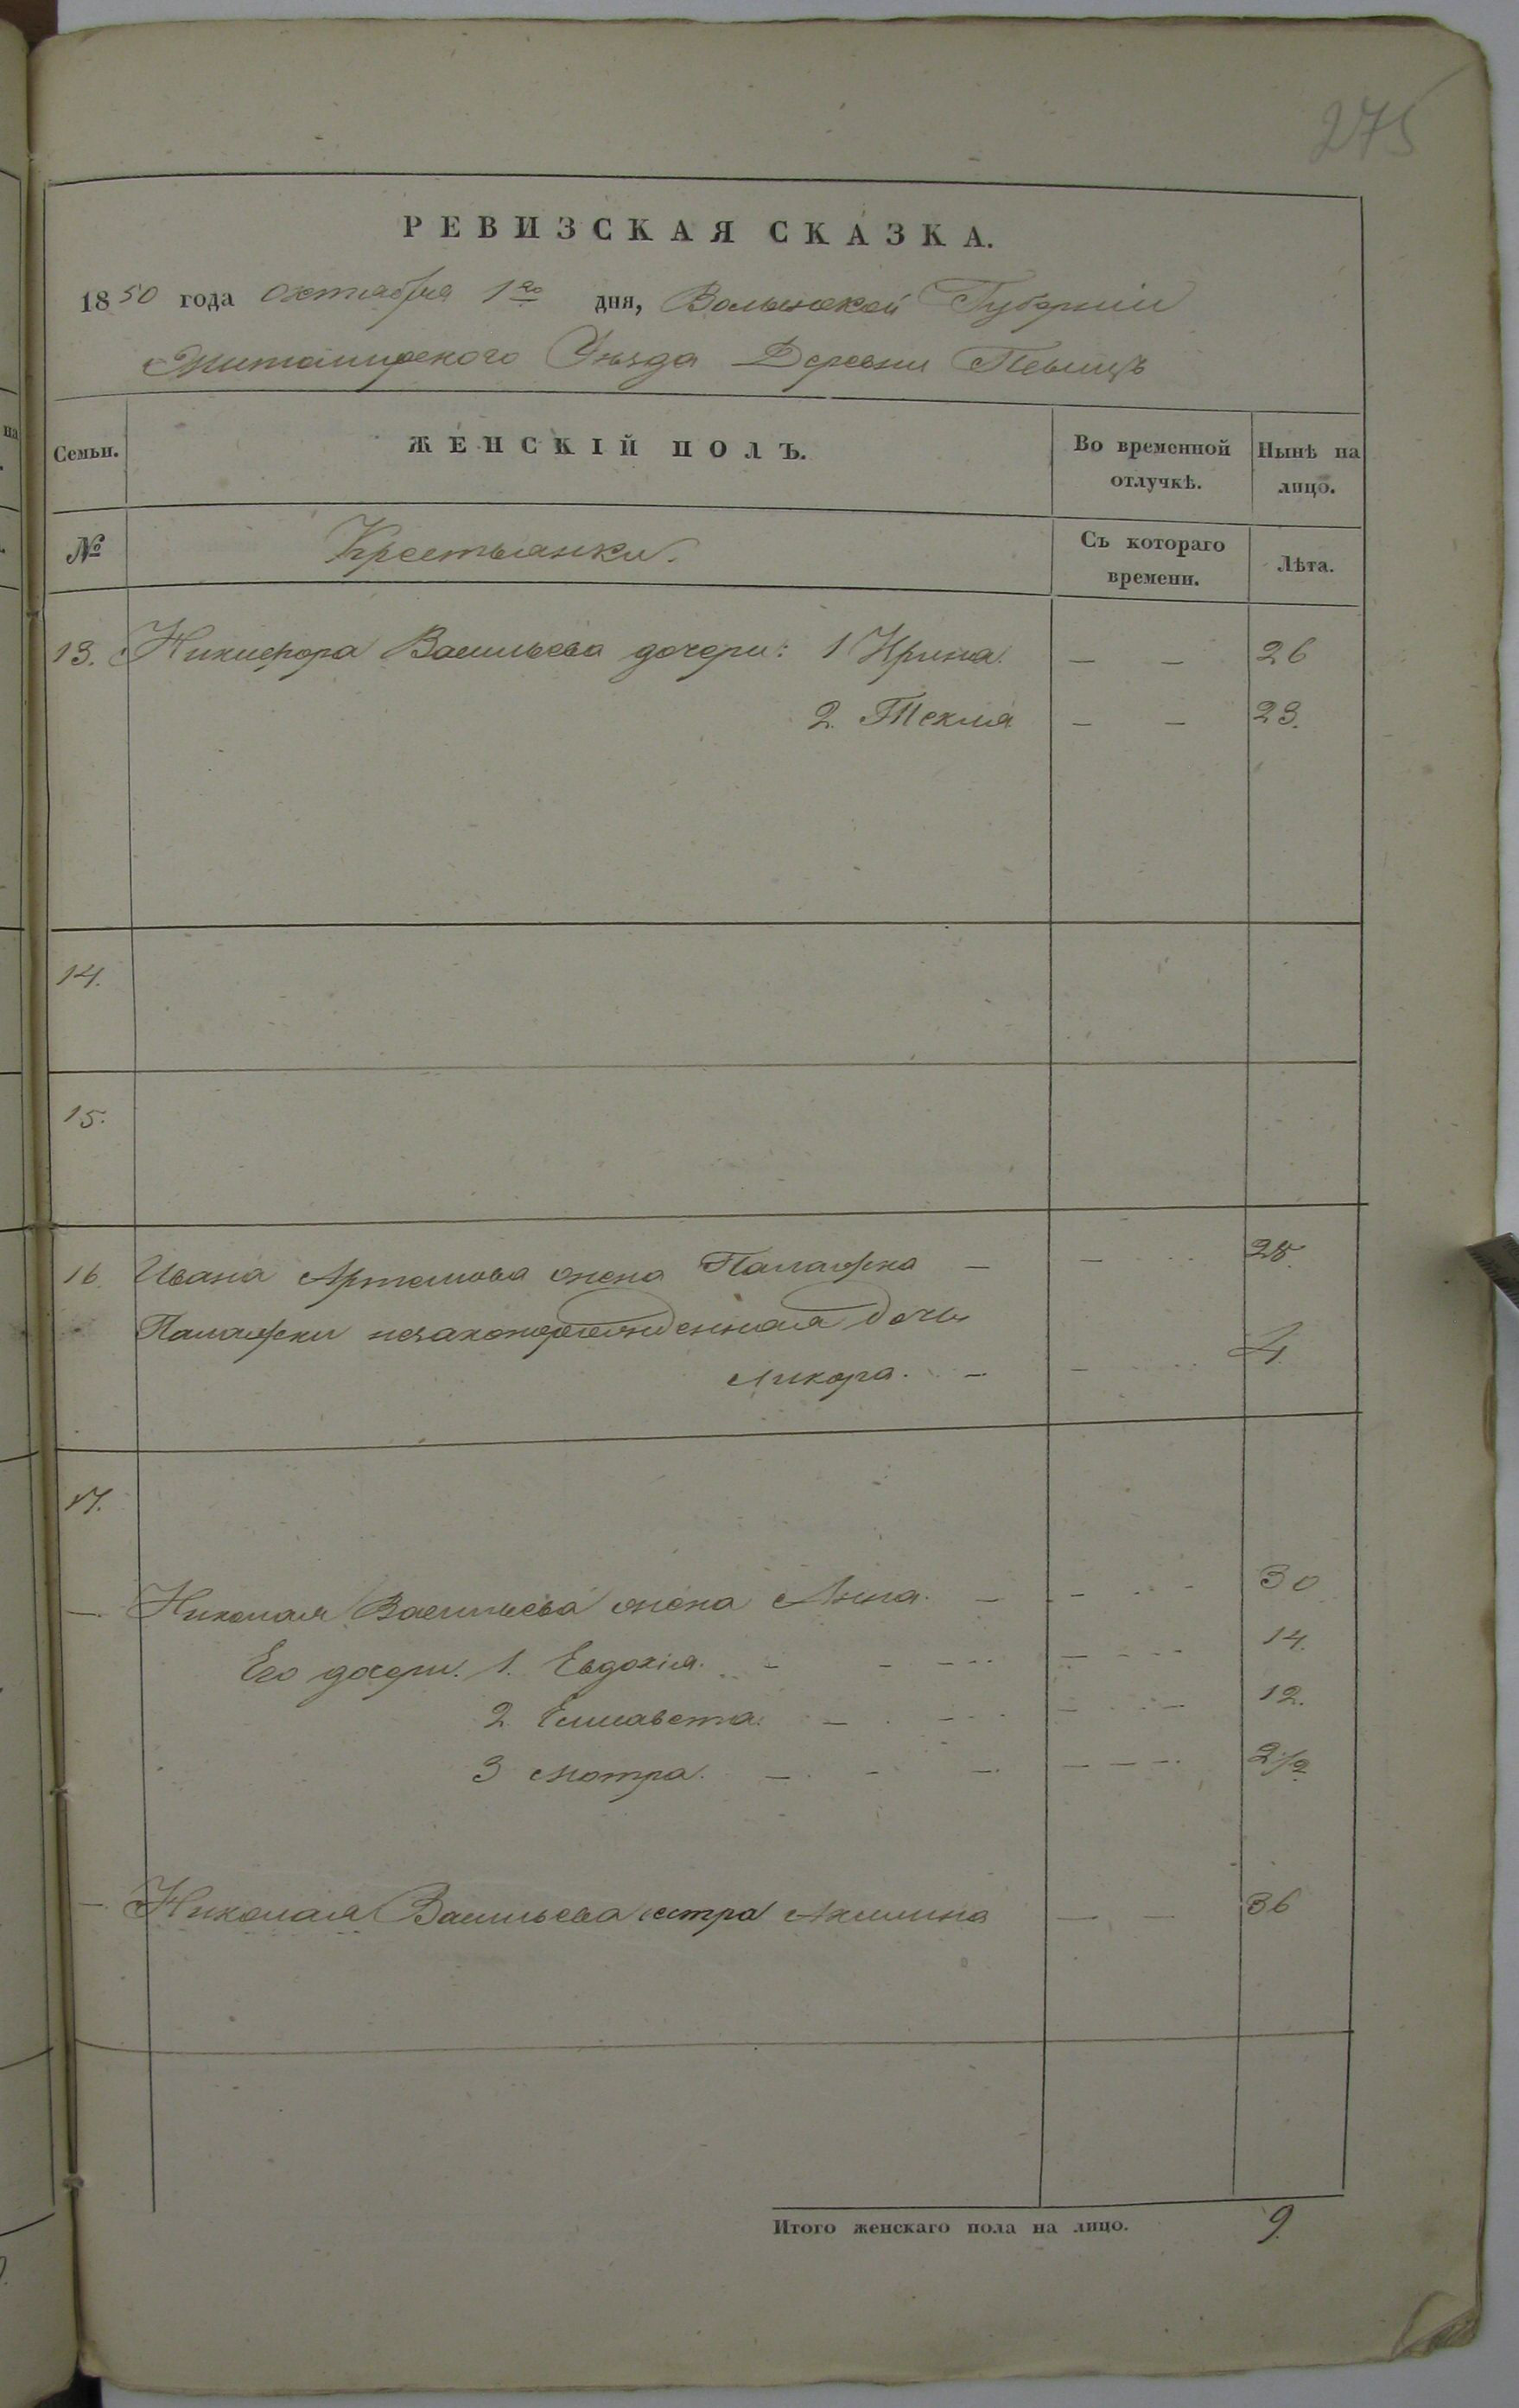 275
РЕВИЗСКАЯ СКАЗКА.
1850 года Октября 1го дня, Волынской Губерніи
Житомирского Уѣзда Деревни
Семьи. ЖЕНСКІЙ ПОЛЪ. Во временной отлучкѣ. Нынѣ на лицо.
№ Крестьянки. Съ котораго времени. Лѣта.
13. Никифора Васильева дочери: 1 Ирина. — — 26
2. Текля — — 23.
14.
15.
16 Ивана Артемова жена Палажка — — 28.
Палажки незаконорожденная дочь
— — 4.
17.
—. Николая Васильева жена Анна. — — 30
Его дочери. 1. Евдокія. — — 14.
2. Елисавета. — — 12.
3 Мотра. — — 2 1/2
— Николая Васильева сестра Акилина — — 36
Итого женскаго пола на лицо. 9.